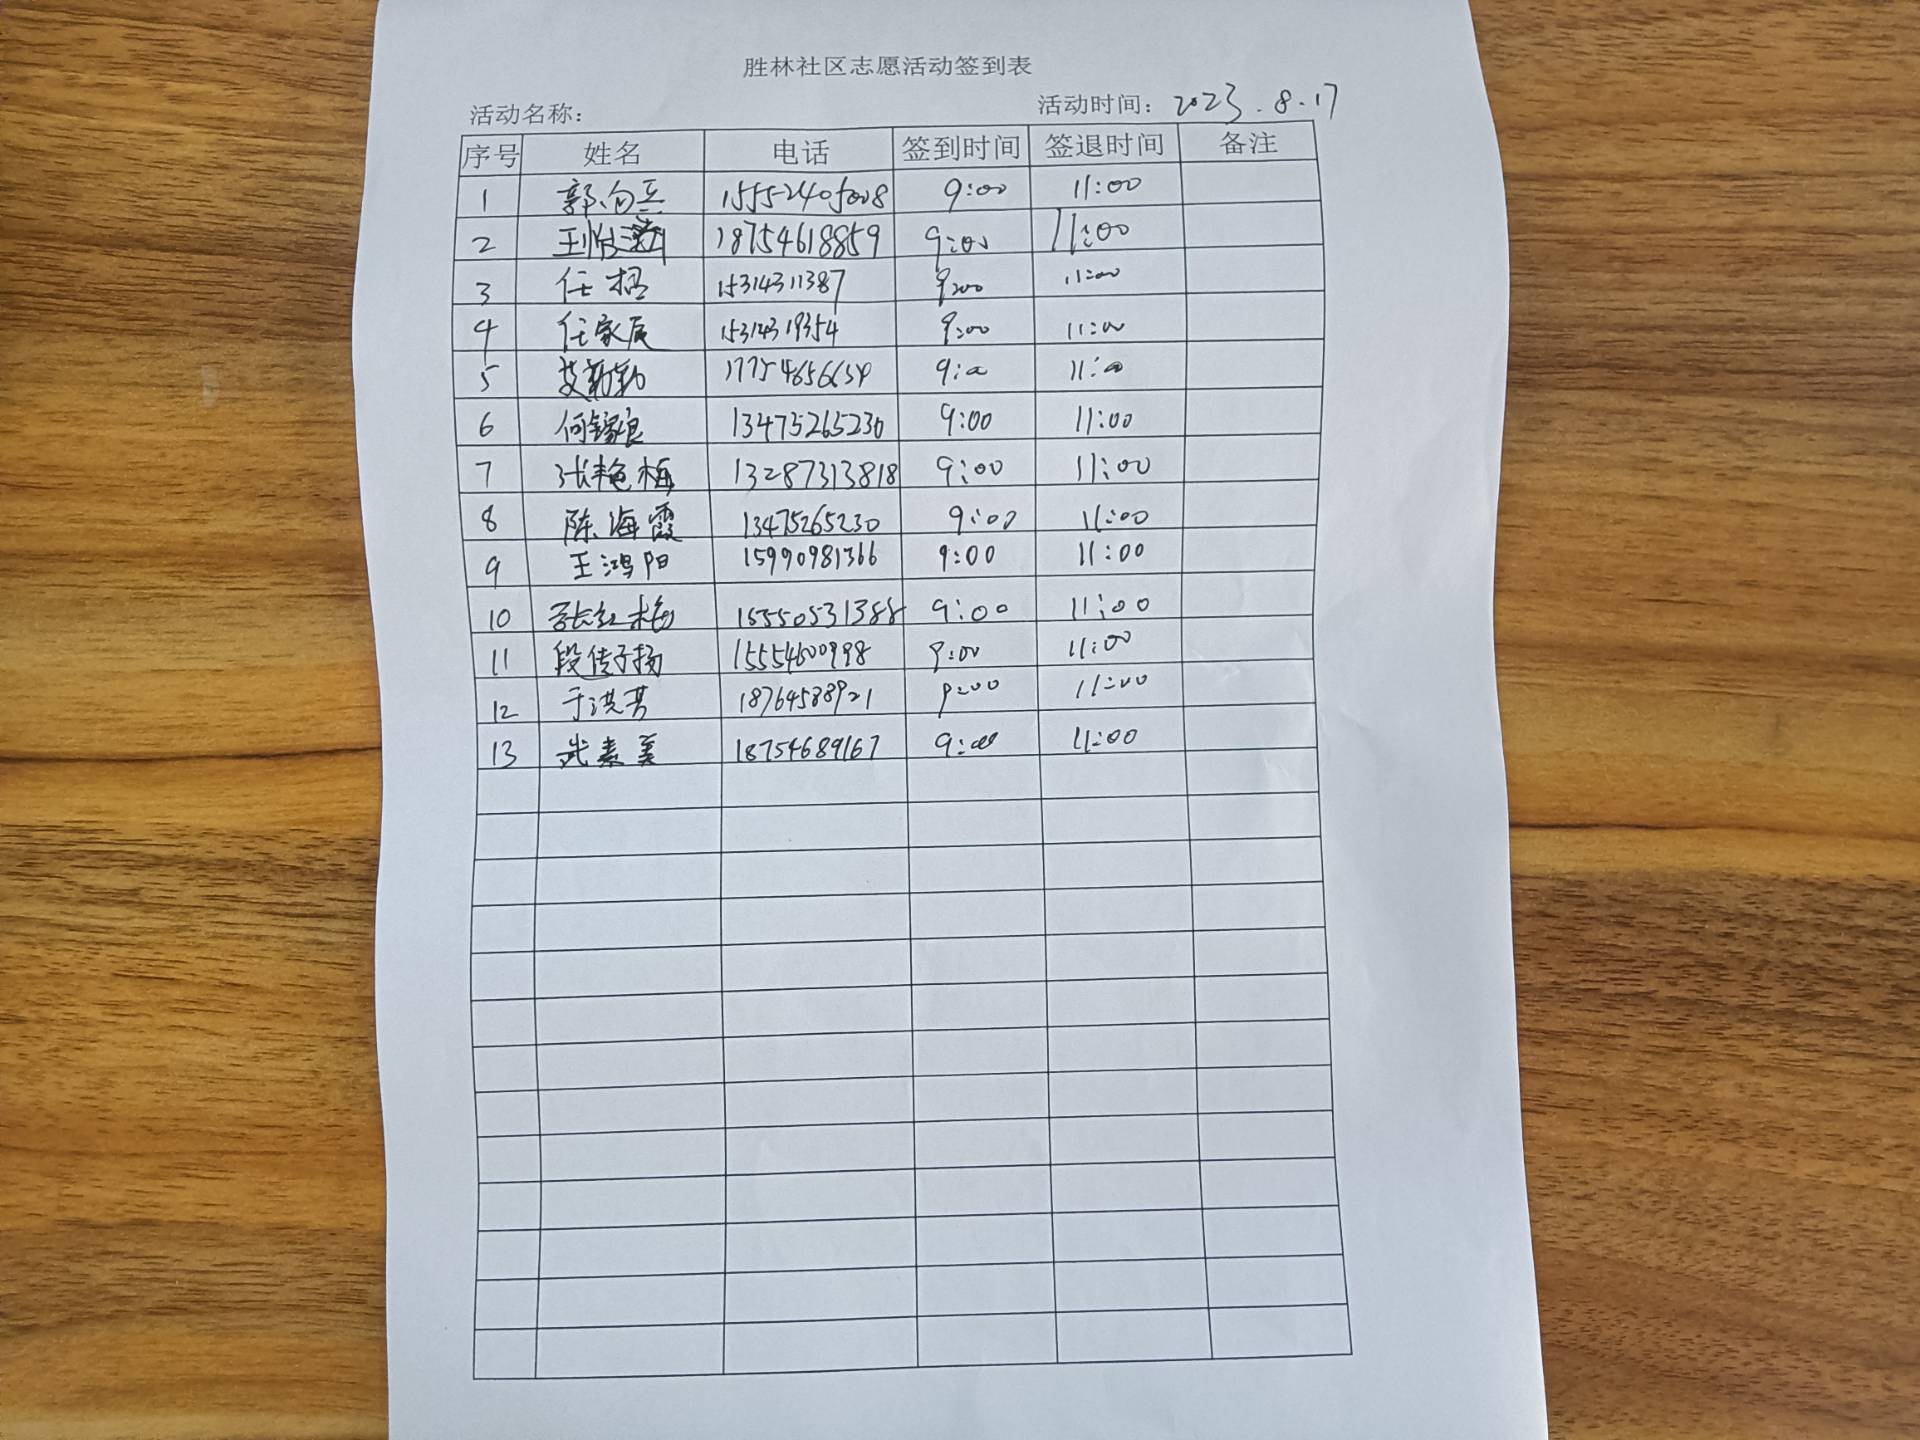 胜林社区志愿活动签到表
活动名称： 活动时间：2023.8.17
序号 姓名 电话 签到时间 签退时间 备注
1 郭向兵 15552405008 9:00 11:00
2 王 18754618859 9:00 11:00
3 任 15314311387 9:00 11:00
4 任家辰 15314319354 9:00 11:00
5 9:00 11:00
6 何 13475265230 9:00 11:00
7 张艳梅 13287313818 9:00 11:00
8 陈海霞 13475265230 9:00 11:00
9 王鸿阳 15990981366 9:00 11:00
10 张红梅 15550531388 9:00 11:00
11 段传子扬 15554600998 9:00 11:00
12 于洪芳 18764588921 9:00 11:00
13 武素美 18754689167 9:00 11:00